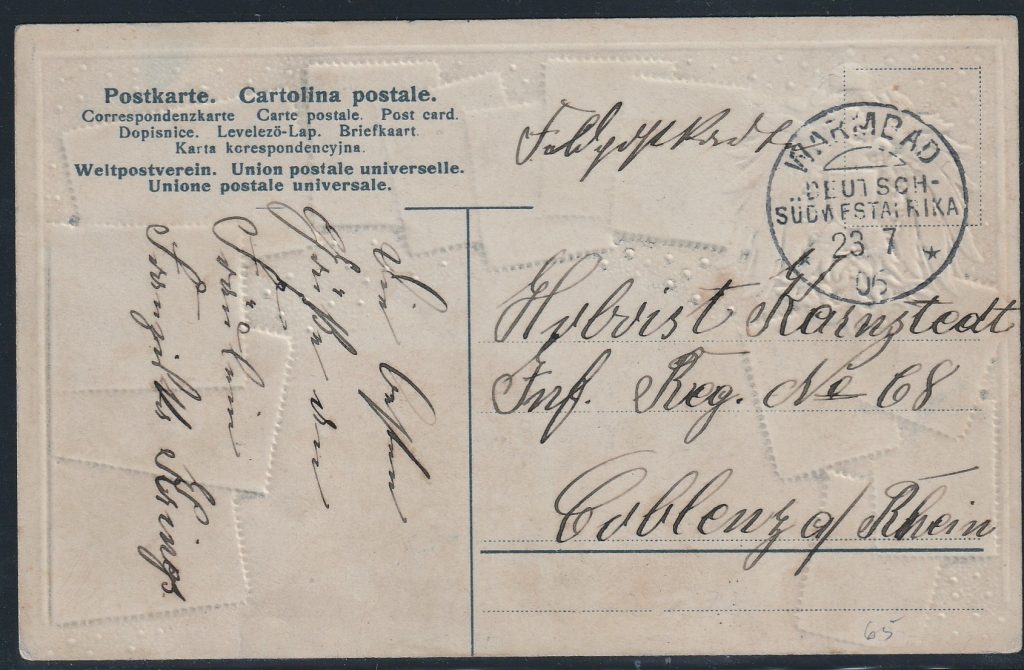 Postkarte. Cartolina postale.
Correspondenzkarte Carte postale. Post card.
Dopisnice. Levelező-Lap. Briefkaart.
Karta korespondencyjna.
Weltpostverein. Union postale universelle.
Unione postale universale.
Feldpostkarte
WARMBAD
DEUTSCH-
SÜDWESTAFRIKA
23 7
06
Hoboist Karnstedt
Inf. Reg. No 68
Coblenz a/ Rhein
Die besten
Grüße von
Krings
65